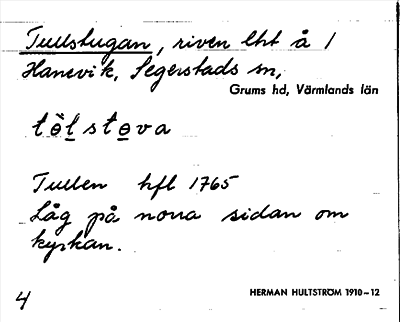 Tullstugan, riven lht å 1
Hanevik, Segerstads sn,
Grums hd, Värmlands län
tö̀l stova
Tullen hfl 1765
Låg på norra sidan om
kyrkan.
4
HERMAN HULTSTRÖM 1910-12